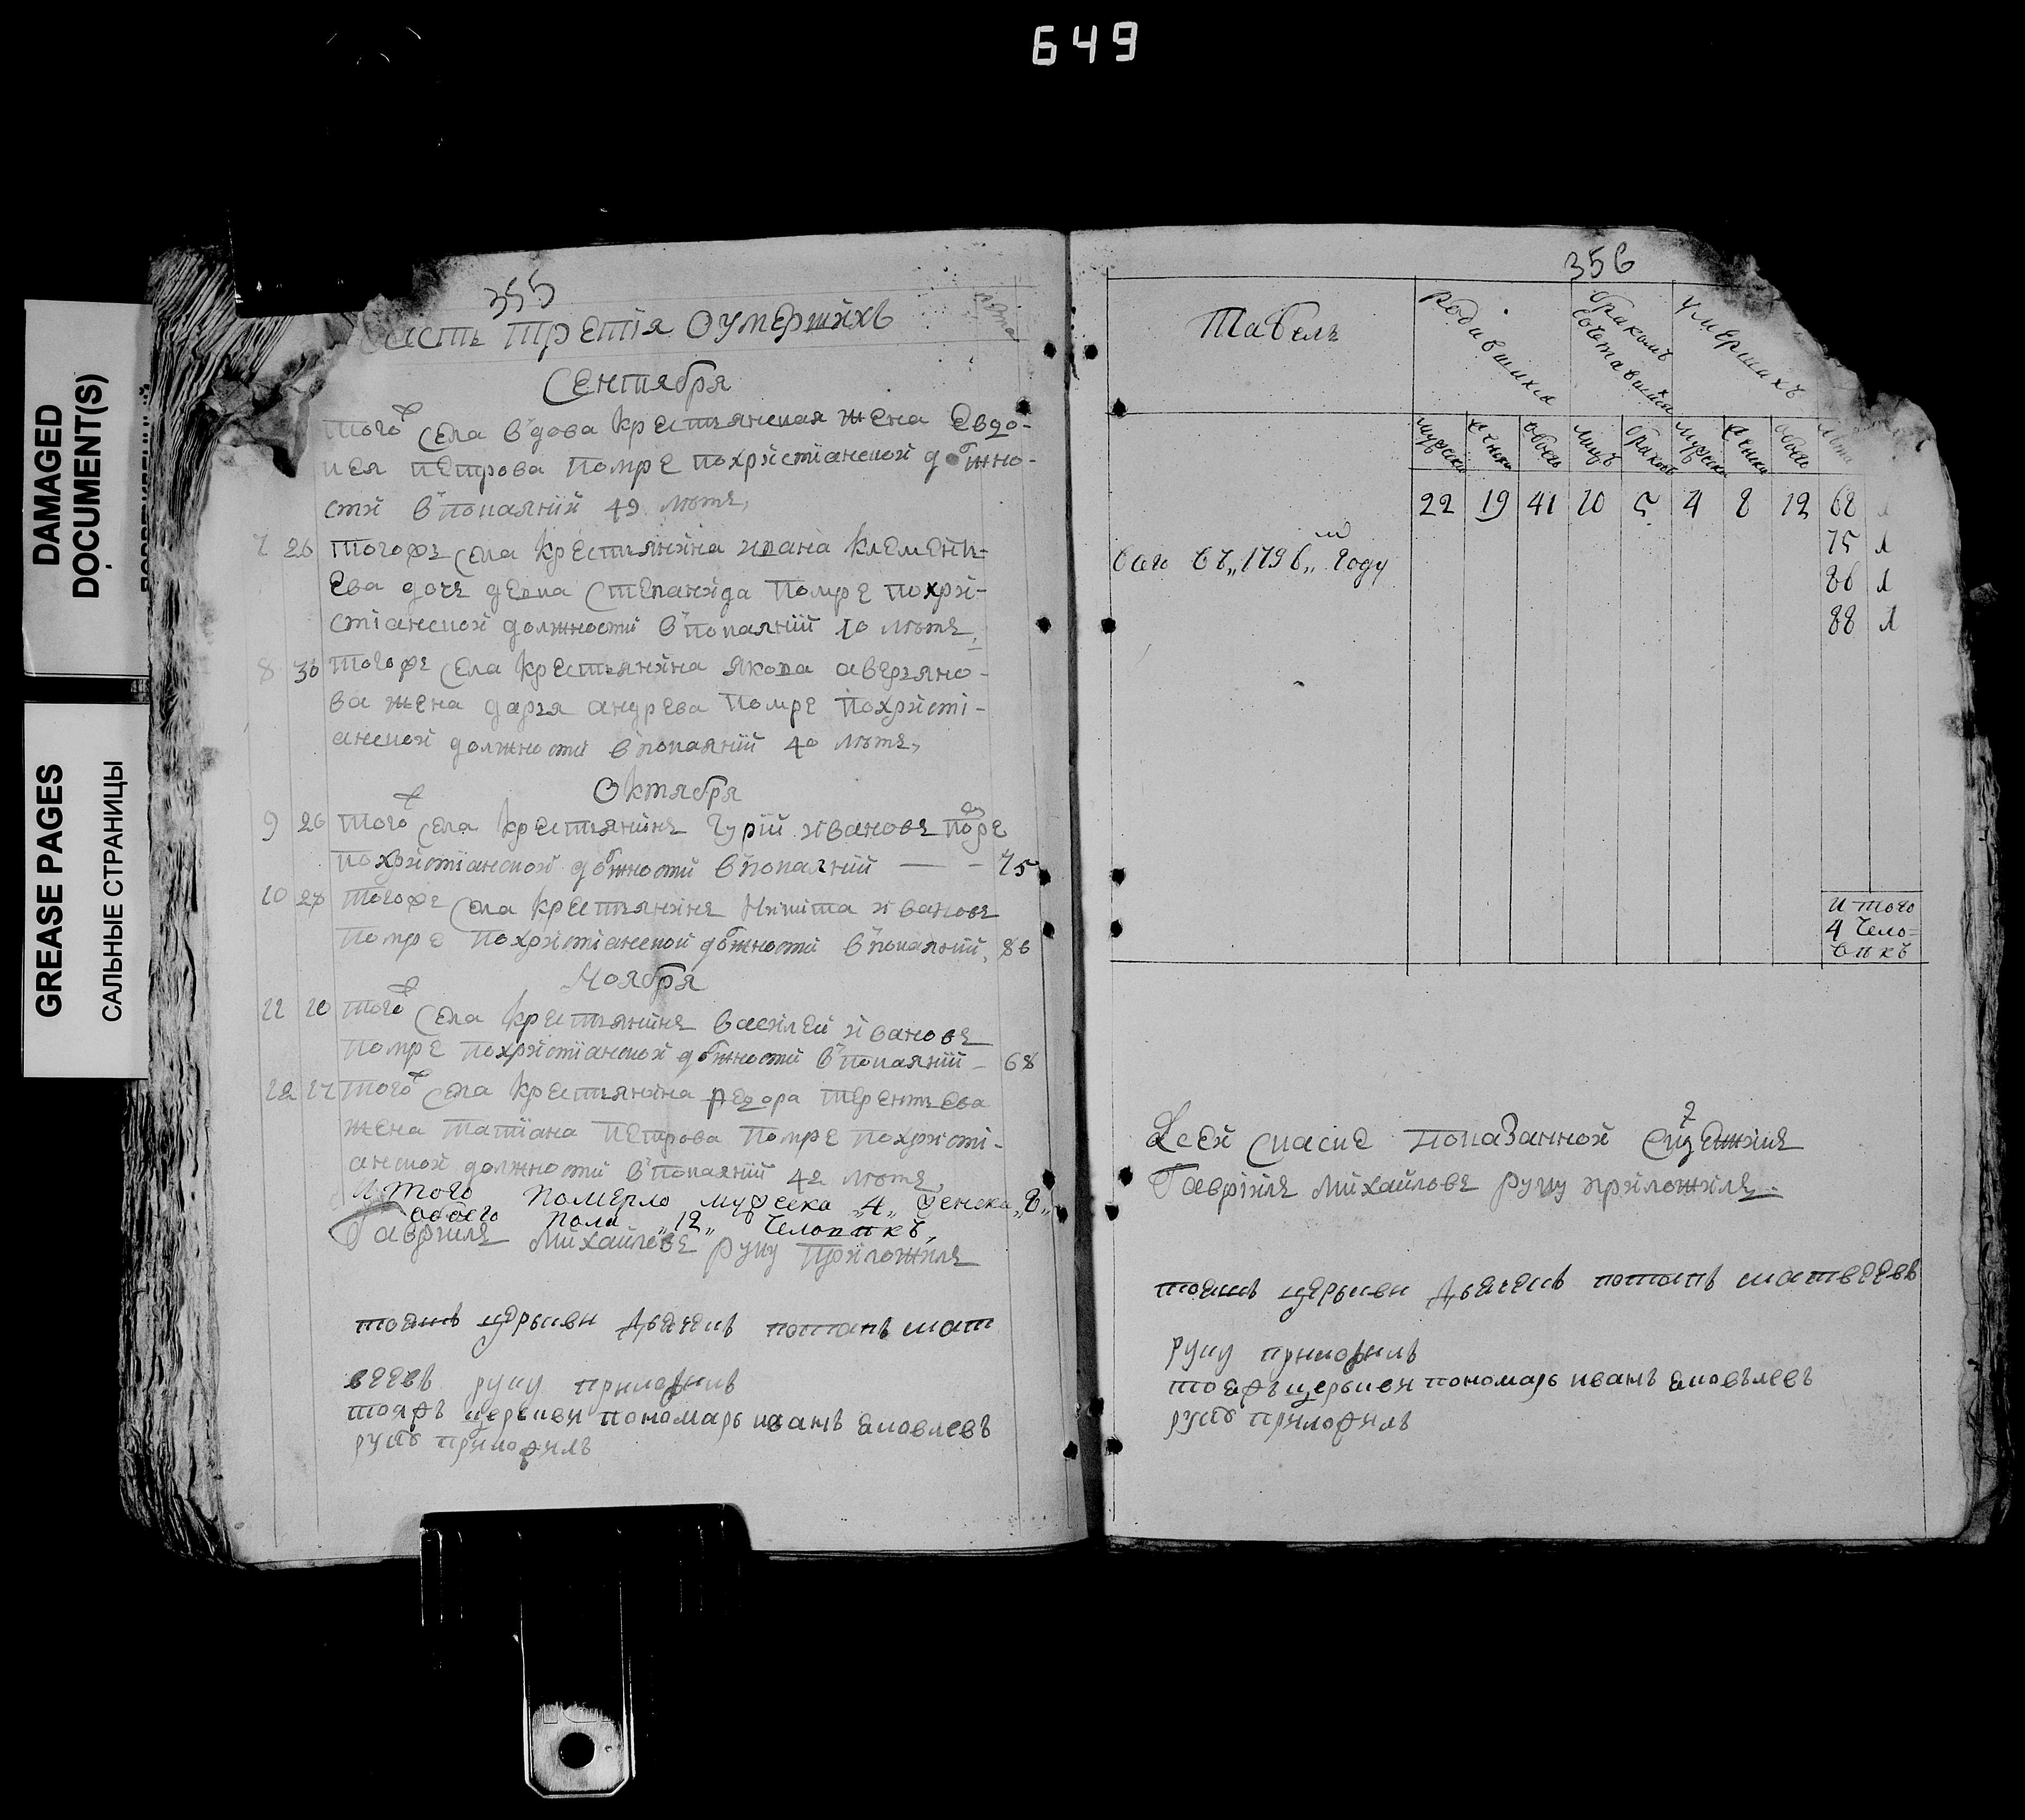 649
DAMAGED
DOCUMENT(S)
GREASE PAGES
САЛЬНЫЕ СТРАНИЦЫ
355
асть третія Оумершихъ
лѣта
Сентября
того ж села вдова крестьянская жена Евдо-
кея петрова помре похристіанской должно-
сти в покаяніи 49 лѣтъ,
7 26 тогожъ села крестьянина ивана клементь-
Ева дочь девка Степанида помре похри-
стіанской должности в покаяніи 10 лѣтъ,
8 30 тогожъ села крестьянина Якова аверьяно-
ва жена дарья андрева помре похристі-
анской должности в покаяніи 40 лѣтъ,
Октября
9 26 того ж села крестьянинъ Гурій ивановъ помре
похристіанской должности в покаяніи — - 75
10 27 тогожъ села крестьянинъ Никита ивановъ
помре похристіанской должности в покаяніи, 86
Ноября
11 10 того ж села крестьянинъ василей ивановъ
помре похристіанской должности в покаяніи - 68
12 17 того ж села крестьянина федора терентьева
жена татіана петрова помре похристі-
анской должности в покаяніи 42 лѣтъ,
Итого померло мужеска „4„ женска „8„
обоего пола „12„ человѣкъ,
Гавріилъ Михайловъ руку приложилъ
тоежъ церькви дьячекъ потапъ мат
вѣевъ руку приложилъ
тояжъ церькви пономарь иванъ яковлевъ
руку приложилъ
356
Табель
Родившихся
бракомъ сочетавшихся
умершихъ
мужеска женска обоего лицъ браковъ мужеска женска обоего лѣта
22 19 41 10 5 4 8 12 68 л
75 л
всего въ „1796„ м году
86 л
88 л
Итого
4 чело=
вѣкъ
Гавріилъ Михайловъ руку приложилъ
тоежъ церькви дьячекъ потапъ матвѣевъ
руку приложилъ
тояжъ церькви пономарь иванъ яковълевъ
руку приложилъ